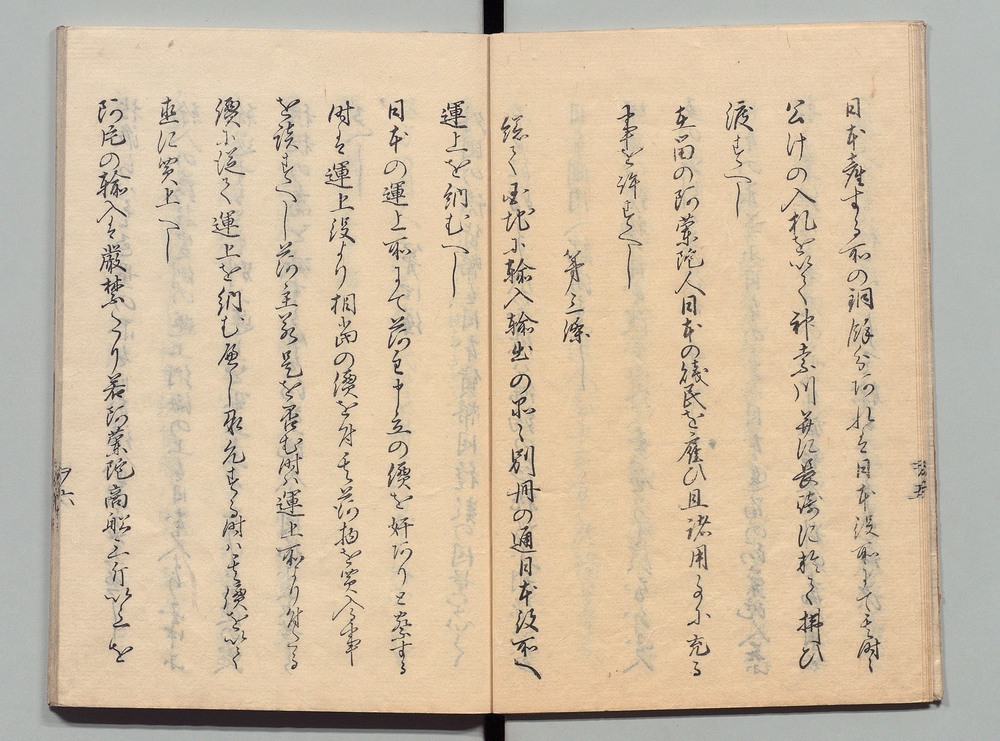 日本産する所の銅餘分あれは日本役所にて其時々
公けの入札を以て神奈川並に長崎に於て拂ひ
渡すへし
在留の阿蘭陀人日本の賤民を雇ひ且諸用事に充る
事を許すへし
第三條
総て国地に輸入輸出の品々別冊の通日本役所へ
運上を納むへし
日本の運上所にて荷主申立の價を奸ありと察する
時は運上役より相当の價を付け其荷物を買入る事
を談すへし荷主若し是を否む時は運上所より付たる
價に従て運上を納む可し承允する時は其價を以て
直に買上へし
阿片の輸入は厳禁たり若阿蘭陀商船三斤以上を